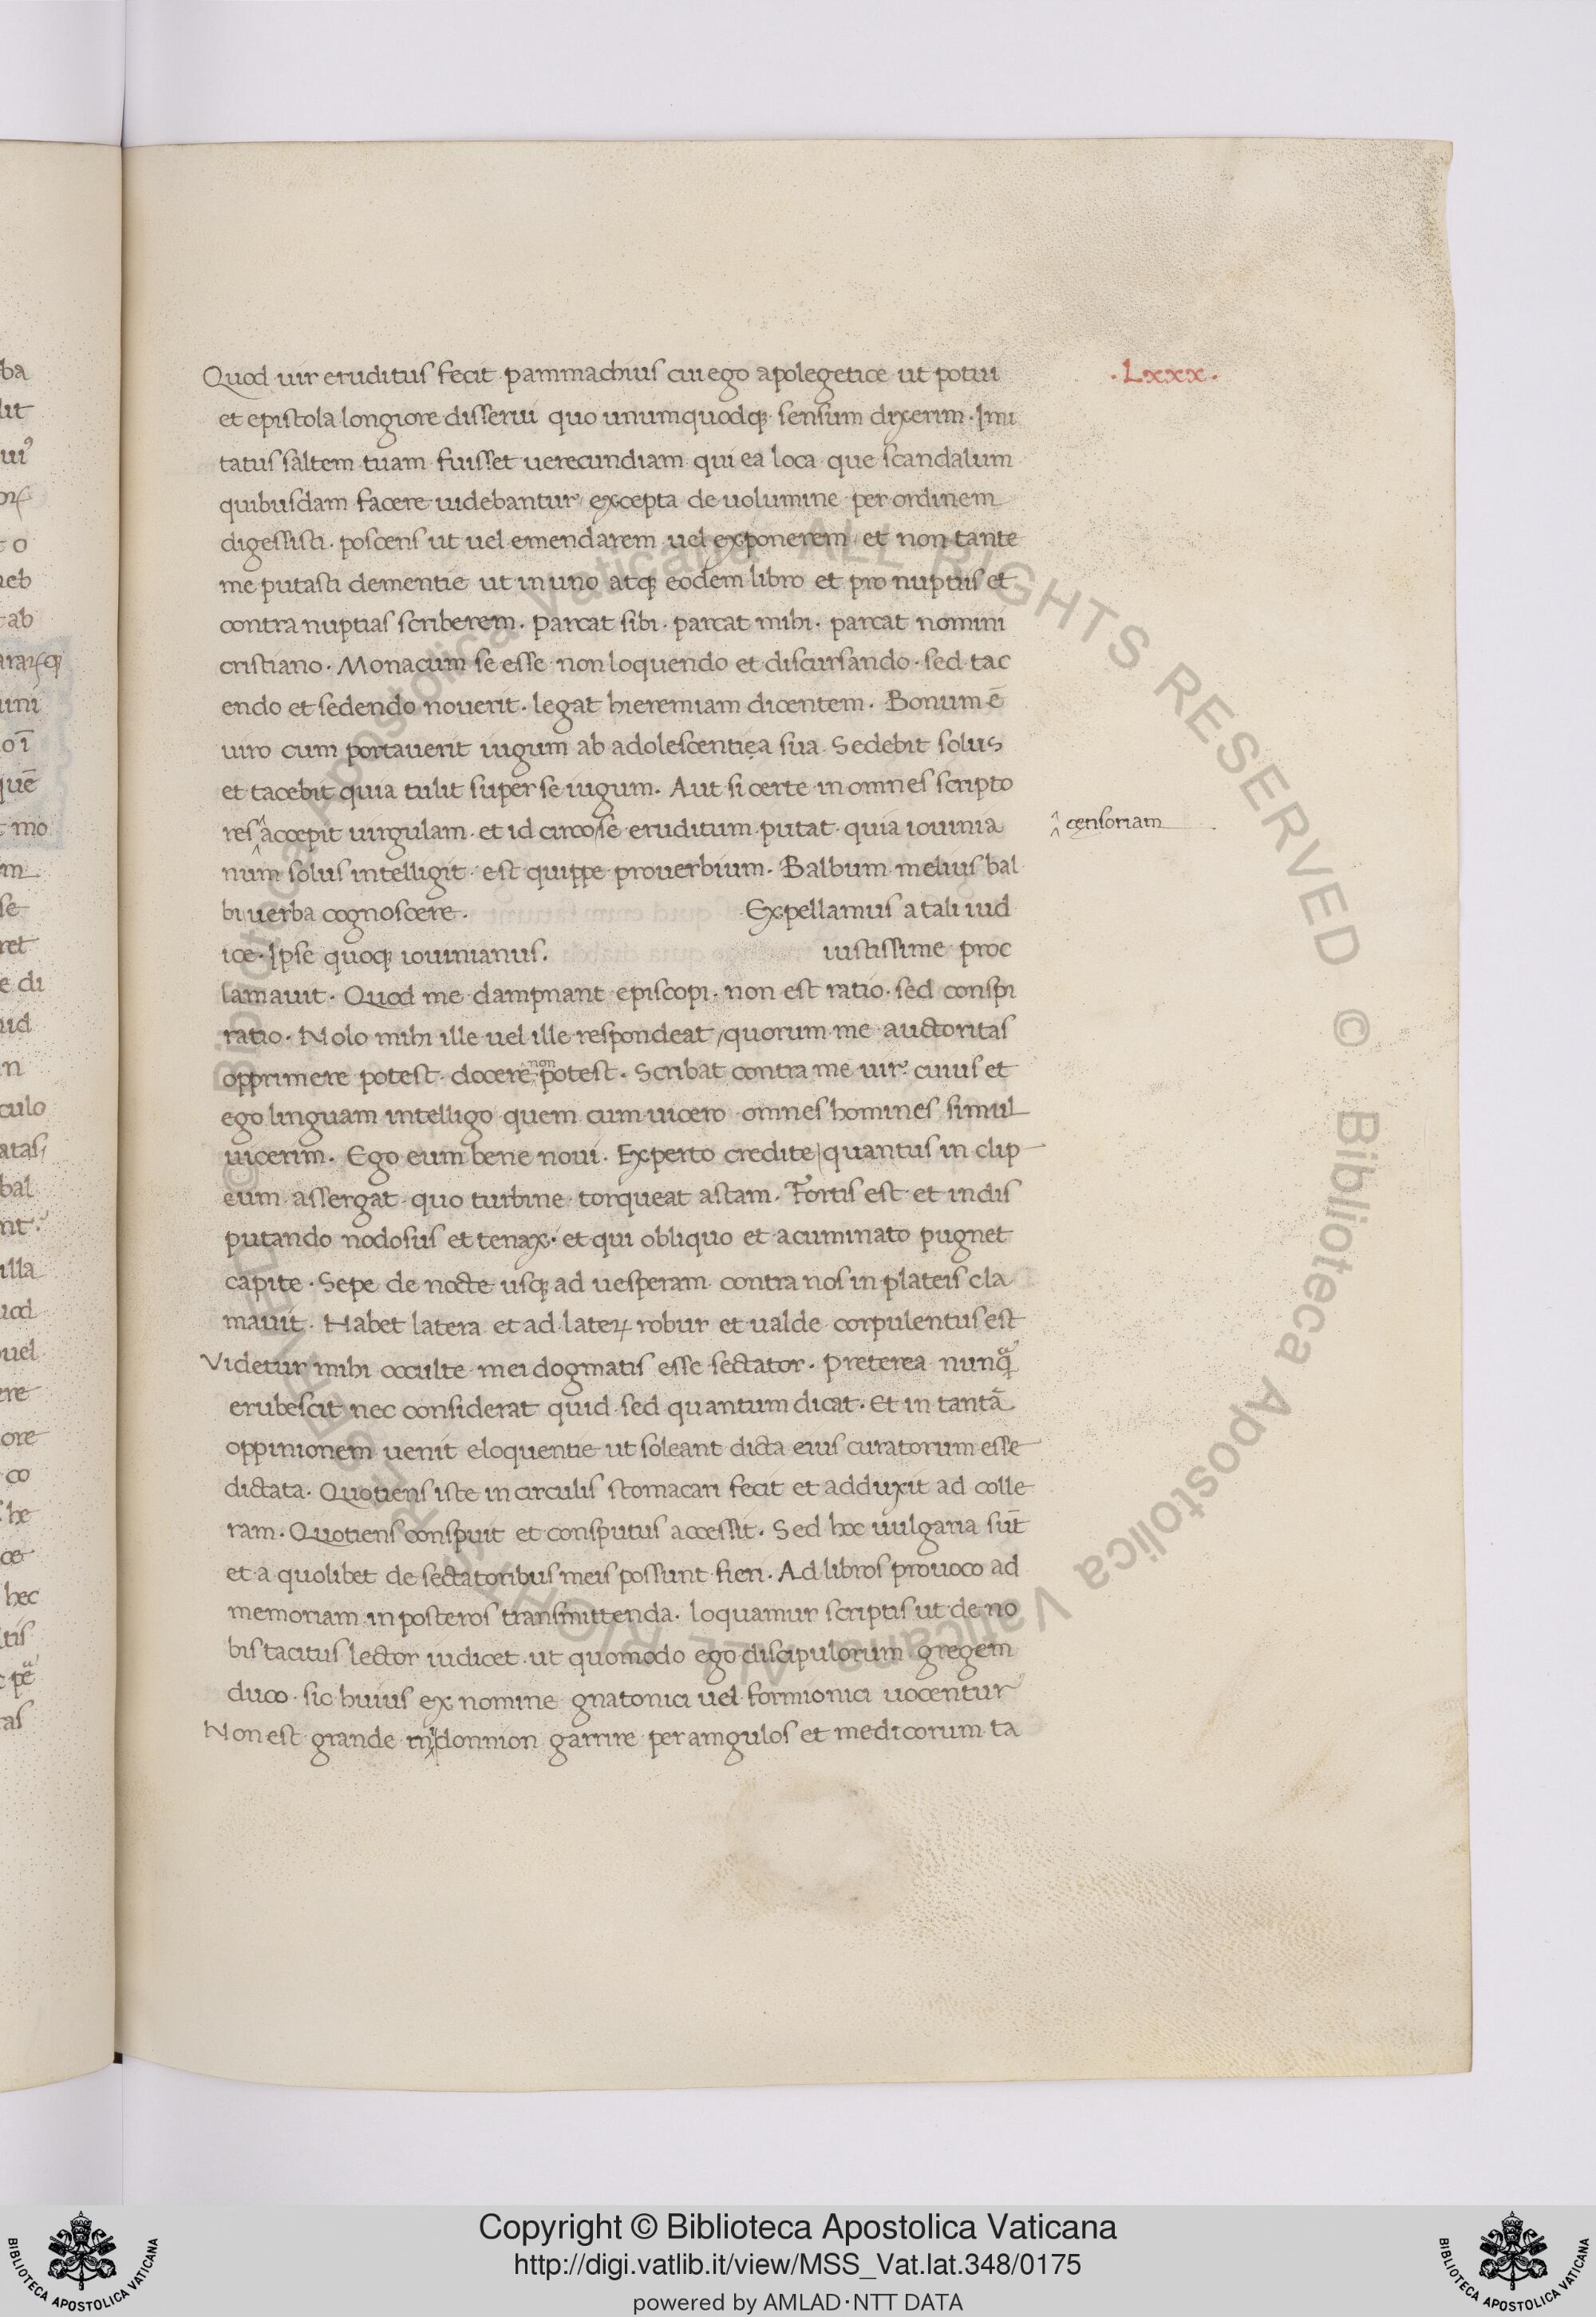 Quod uir eruditus fecit pammachius cui ego apolegetice ut potui
.Lxxx.
et epistola longiore disserui quo unumquodq; sensum dixerim. Imi
tatus saltem tuam fuisset uerecundiam qui ea loca que scandalum
quibusdam facere uidebantur excepta de uolumine per ordinem
digessisti. poscens ut uel emendarem uel exponerem / et non tante
me putasti dementie ut in uno atq; eodem libro et pro nuptiis et
contra nuptias scriberem. Parcat sibi. parcat mihi. parcat nomini
cristiano. Monacum se esse non loquendo et discursando. sed tac
endo et sedendo nouerit. legat hieremiam dicentem. Bonum ē
uiro cum portauerit iugum ab adolescentięa sua. Sedebit solus
et tacebit quia tulit super se iugum. Aut si certe in omnes scripto
res ^ accepit uirgulam. et id circo se eruditum putat quia iouinia
^ cęnsoriam
num solus intelligit. est quippe prouerbium. Balbum melius bal
bi uerba cognoscere. Expellamus a tali iud
ice. Ipse quoq; iouinianus. iustissime proc
lamauit. Quod me dampnant episcopi. non est ratio. sed conspi
ratio. Nolo mihi ille uel ille respondeat / quorum me auctoritas
opprimere potest. docere non potest. Scribat contra me uir cuius et
ego linguam intelligo quem cum uicero omnes homines simul
uicerim. Ego eum bene noui. Experto credite / quantus in clip
eum assergat quo turbine torqueat astam. Fortis est et in dis
putando nodosus et tenax. et qui obliquo et acuminato pugnet
capite. Sepe de nocte usq; ad uesperam contra nos in plateis cla
mauit. Habet latera et ad laterꝝ robur et ualde corpulentus est
Videtur mihi occulte mei dogmatis esse sectator. Preterea nunqᷓ
erubescit nec considerat quid sed quantum dicat. Et in tantā
oppinionem uenit eloquentie ut soleant dicta eius curatorum esse
dictata. Quotiens iste in circulis stomacari fecit et adduxit ad colle
ram. Quotiens conspuit et consputus accessit. Sed hoc uulgaria sūt
et a quolibet de sectatoribus meis possunt fieri. Ad libros prouoco ad
memoriam in posteros transmittenda. loquamur scriptis ut de no
bis tacitus lector iudicet. ut quomodo ego discipulorum gregem
duco. sic huius ex nomine gnatonici uel formionici uocentur
Non est grande mi donnion garrire per amgulos et medicorum ta
Copyright © Biblioteca Apostolica Vaticana
http://digi.vatlib.it/view/MSS_Vat.lat.348/0175
powered by AMLAD·NTT DATA